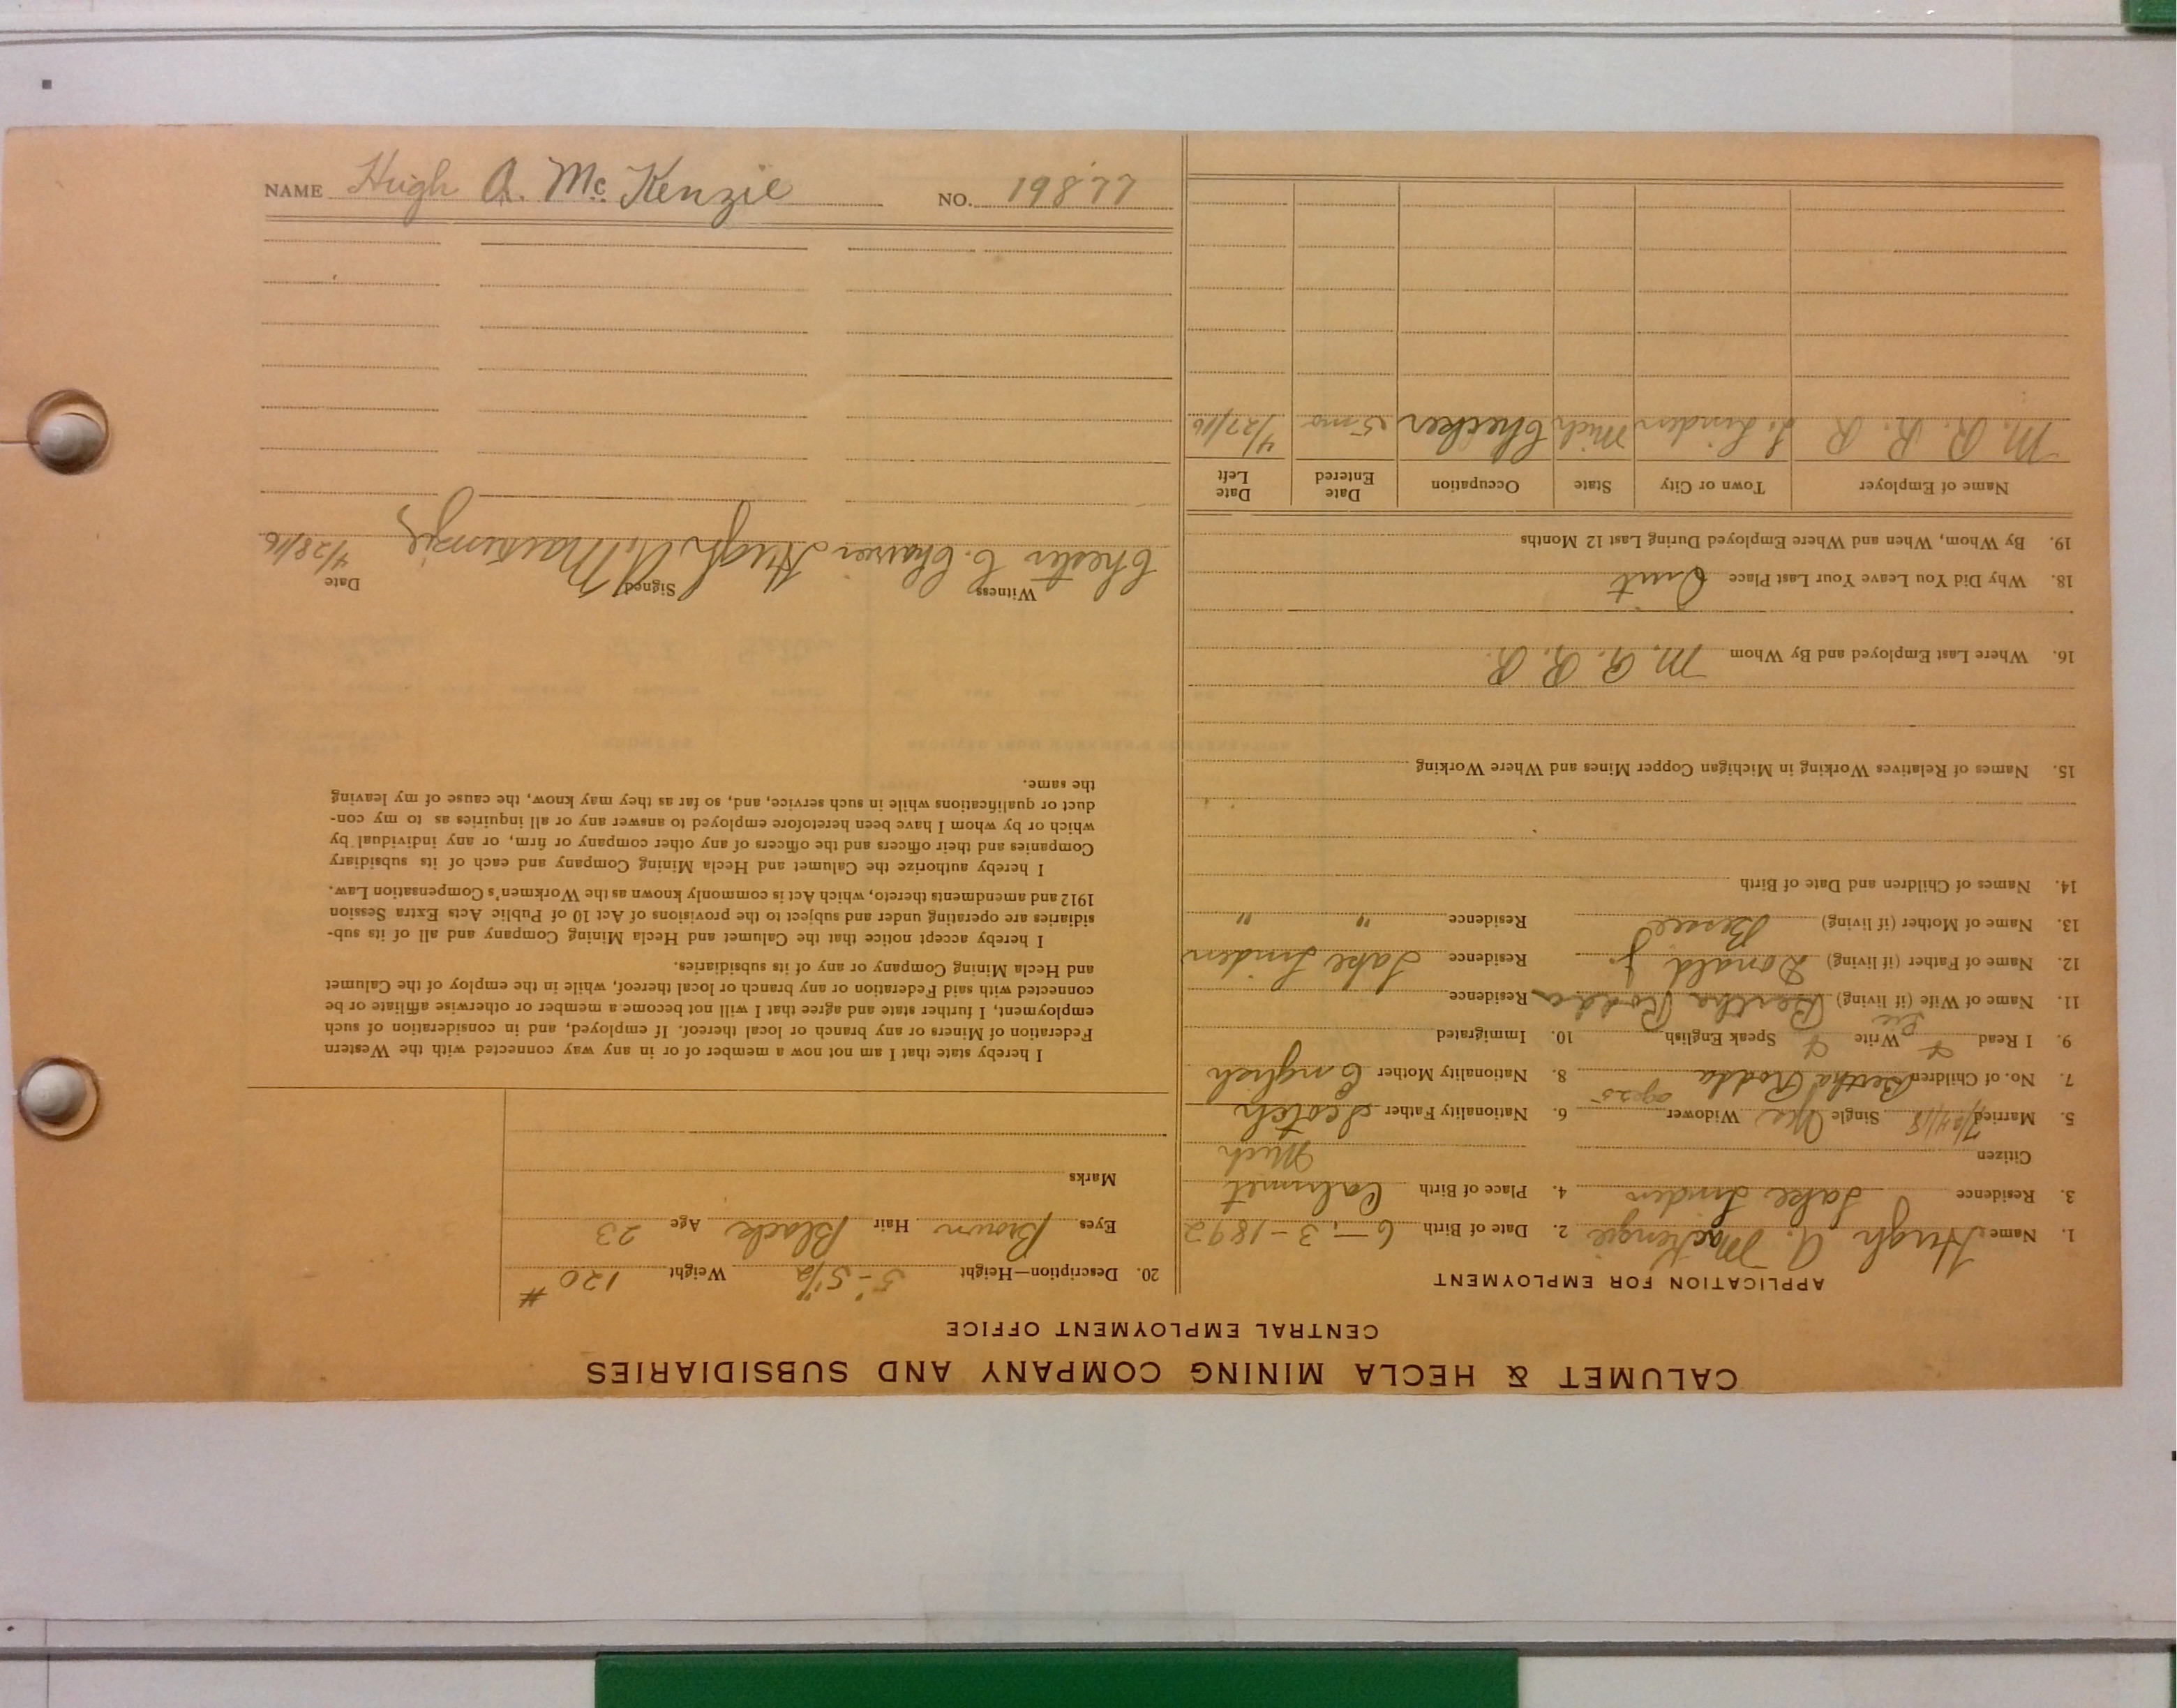 CALUMET & HECLA MINING COMPANY AND SUBSIDIARIES
CENTRAL EMPLOYMENT OFFICE
APPLICATION FOR EMPLOYMENT
1. Name Hugh A. MacKenzie 2. Date of Birth 6-3-1892
3. Residence Lake Linden 4. Place of Birth Calumet
Citizen Mich
5. Married 7/24/18 Single Yes Widower 6. Nationality Father Scotch
7. No. of Children Bertha Rodda age 25 8. Nationality Mother English
9. I Read Write Speak English 10. Immigrated
11. Name of Wife (if living) Bertha Rodda Residence
12. Name of Father (if living) Donald J. Residence Lake Linden
13. Name of Mother (if living) Bessie Residence " "
14. Names of Children and Date of Birth
15. Names of Relatives Working in Michigan Copper Mines and Where Working
16. Where Last Employed and By Whom M. R. R. R.
18. Why Did You Leave Your Last Place Quit
19. By Whom, When and Where Employed During Last 12 Months
Name of Employer Town or City State Occupation Date Entered Date Left
M. R. R. R L. Linden Mich Checker 5 mo 4/27/16
20. Description—Height 5'-5 1/2" Weight 120 #
Eyes Brown Hair Black Age 23
Marks
I hereby state that I am not now a member of or in any way connected with the Western
Federation of Miners or any branch or local thereof. If employed, and in consideration of such
employment, I further state and agree that I will not become a member or otherwise affiliate or be
connected with said Federation or any branch or local thereof, while in the employ of the Calumet
and Hecla Mining Company or any of its subsidiaries.
I hereby accept notice that the Calumet and Hecla Mining Company and all of its sub-
sidiaries are operating under and subject to the provisions of Act 10 of Public Acts Extra Session
1912 and amendments thereto, which Act is commonly known as the Workmen's Compensation Law.
I hereby authorize the Calumet and Hecla Mining Company and each of its subsidiary
Companies and their officers and the officers of any other company or firm, or any individual by
which or by whom I have been heretofore employed to answer any or all inquiries as to my con-
duct or qualifications while in such service, and, so far as they may know, the cause of my leaving
the same.
Witness Signed Date
Chester C. Hugh A. MacKenzie 4/28/16
NAME Hugh A. McKenzie NO. 19877